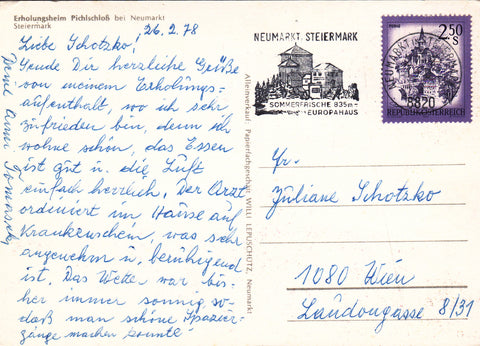 Erholungsheim Pichlschloß bei Neumarkt
Steiermark
26.2.78
Liebe Schotzko!
Sende Dir herzliche Grüße
von meinem Erholungs-
aufenthalt, wo ich sehr
zufrieden bin, denn ich
wohne schön, das Essen
ist gut u. die Luft
einfach herrlich. Der Arzt
ordiniert im Hause auf
Krankenschein, was sehr
angenehm u. beruhigend
ist. Das Wetter war bis-
her immer sonnig, so-
daß man schöne Spazier-
gänge machen konnte!
Deine Anni
Alleinverkauf: Papierfachgeschäft WILLI LEPUSCHÜTZ, Neumarkt
NEUMARKT, STEIERMARK
SOMMERFRISCHE 835m
EUROPAHAUS
2.50
S
8820
REPUBLIK ÖSTERREICH
Fr.
Juliane Schotzko
1080 Wien
Laudongasse 8/31